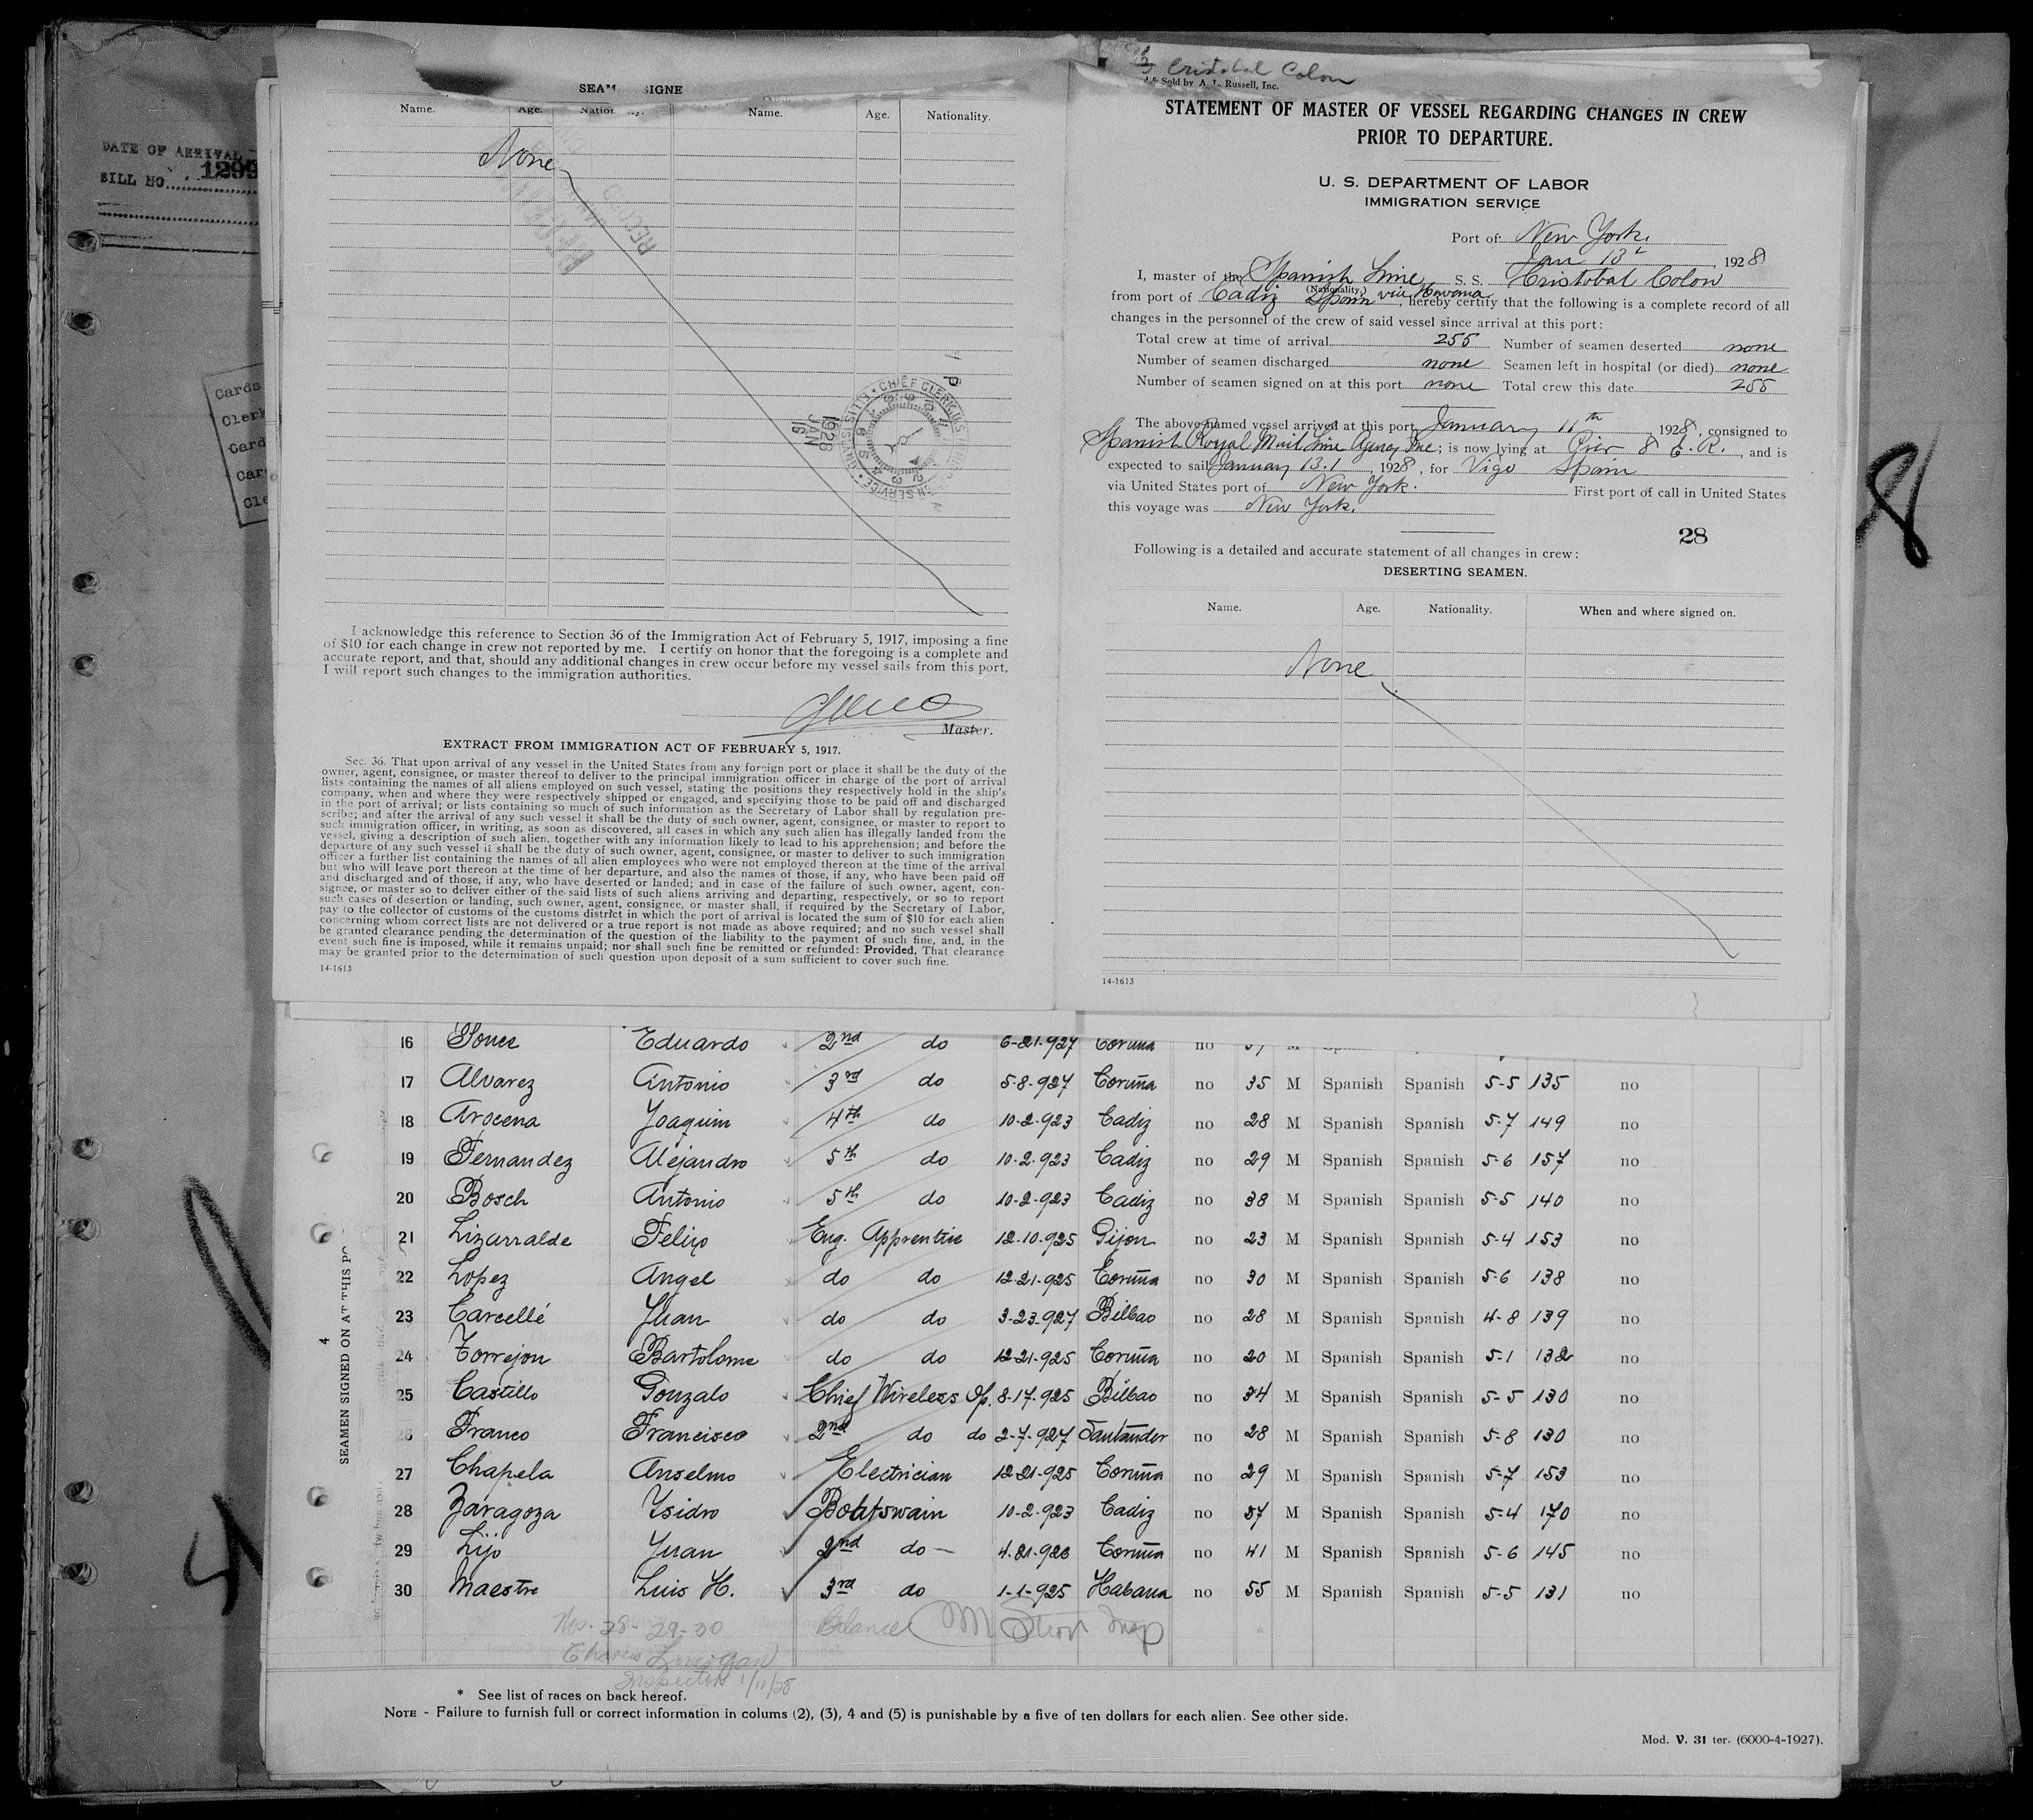 DATE OF ARRIVAL
BILL NO. 1299
Cards
Clerk
Card
Car
Cle
Name. Age. Name. Age. Nationality.
None
REC'D
1928
JAN
16
CHIEF CLERK
I acknowledge this reference to Section 36 of the Immigration Act of February 5, 1917, imposing a fine
of $10 for each change in crew not reported by me. I certify on honor that the foregoing is a complete and
accurate report, and that, should any additional changes in crew occur before my vessel sails from this port,
I will report such changes to the immigration authorities.
Master.
EXTRACT FROM IMMIGRATION ACT OF FEBRUARY 5, 1917.
Sec. 36. That upon arrival of any vessel in the United States from any foreign port or place it shall be the duty of the
owner, agent, consignee, or master thereof to deliver to the principal immigration officer in charge of the port of arrival
lists containing the names of all aliens employed on such vessel, stating the positions they respectively hold in the ship's
company, when and where they were respectively shipped or engaged, and specifying those to be paid off and discharged
in the port of arrival; or lists containing so much of such information as the Secretary of Labor shall by regulation pre-
scribe; and after the arrival of any such vessel it shall be the duty of such owner, agent, consignee, or master to report to
such immigration officer, in writing, as soon as discovered, all cases in which any such alien has illegally landed from the
vessel, giving a description of such alien, together with any information likely to lead to his apprehension; and before the
departure of any such vessel it shall be the duty of such owner, agent, consignee, or master to deliver to such immigration
officer a further list containing the names of all alien employees who were not employed thereon at the time of the arrival
but who will leave port thereon at the time of her departure, and also the names of those, if any, who have been paid off
and discharged and of those, if any, who have deserted or landed; and in case of the failure of such owner, agent, con-
signee, or master so to deliver either of the said lists of such aliens arriving and departing, respectively, or so to report
such cases of desertion or landing, such owner, agent, consignee, or master shall, if required by the Secretary of Labor,
pay to the collector of customs of the customs district in which the port of arrival is located the sum of $10 for each alien
concerning whom correct lists are not delivered or a true report is not made as above required; and no such vessel shall
be granted clearance pending the determination of the question of the liability to the payment of such fine, and, in the
event such fine is imposed, while it remains unpaid; nor shall such fine be remitted or refunded: Provided, That clearance
may be granted prior to the determination of such question upon deposit of a sum sufficient to cover such fine.
14-1613
Cristobal Colon
Sold by A. L. Russell, Inc.
STATEMENT OF MASTER OF VESSEL REGARDING CHANGES IN CREW
PRIOR TO DEPARTURE.
U. S. DEPARTMENT OF LABOR
IMMIGRATION SERVICE
Port of New York.
Jan 13, 1928
I, master of the Spanish Line S. S. Cristobal Colon
(Nationality)
from port of Cadiz Spain via Havana, hereby certify that the following is a complete record of all
changes in the personnel of the crew of said vessel since arrival at this port:
Total crew at time of arrival 255 Number of seamen deserted none
Number of seamen discharged none Seamen left in hospital (or died) none
Number of seamen signed on at this port none Total crew this date 255
The above-named vessel arrived at this port January 11th, 1928, consigned to
Spanish Royal Mail Line Agency Inc; is now lying at Pier 8 E. R., and is
expected to sail January 13, 1928, for Vigo Spain
via United States port of New York. First port of call in United States
this voyage was New York.
28
Following is a detailed and accurate statement of all changes in crew:
DESERTING SEAMEN.
Name. Age. Nationality. When and where signed on.
None
14-1613
8
4
SEAMEN SIGNED ON AT THIS PO
16 Eduardo 2nd do 6-21-927 Coruña no
17 Alvarez Antonio 3rd do 5-8-927 Coruña no 35 M Spanish Spanish 5-5 135 no
18 Arocena Joaquim 4th do 10-2-923 Cadiz no 28 M Spanish Spanish 5-7 149 no
19 Fernandez Alejandro 5th do 10-2-923 Cadiz no 29 M Spanish Spanish 5-6 157 no
20 Bosch Antonio 5th do 10-2-923 Cadiz no 38 M Spanish Spanish 5-5 140 no
21 Lizarralde Felix Eng. Apprentice 12-10-925 Gijon no 23 M Spanish Spanish 5-4 153 no
22 Lopez Angel do do 12-21-925 Coruña no 30 M Spanish Spanish 5-6 138 no
23 Carcellé Juan do do 3-23-927 Bilbao no 28 M Spanish Spanish 4-8 139 no
24 Torrejon Bartolome do do 12-21-925 Coruña no 20 M Spanish Spanish 5-1 132 no
25 Castillo Gonzalo Chief Wireless Op. 8-17-925 Bilbao no 34 M Spanish Spanish 5-5 130 no
26 Franco Francisco 2nd do do 2-7-927 Santander no 28 M Spanish Spanish 5-8 130 no
27 Chapela Anselmo Electrician 12-21-925 Coruña no 29 M Spanish Spanish 5-7 153 no
28 Zaragoza Ysidro Boatswain 10-2-923 Cadiz no 57 M Spanish Spanish 5-4 170 no
29 Lijo Juan 2nd do 4-21-926 Coruña no 41 M Spanish Spanish 5-6 145 no
30 Maestre Luis H. 3rd do 1-1-925 Habana no 55 M Spanish Spanish 5-5 131 no
Nos. 28-29-30 Balance
Inspector 1/11/28
* See list of races on back hereof.
NOTE - Failure to furnish full or correct information in colums (2), (3), 4 and (5) is punishable by a five of ten dollars for each alien. See other side.
Mod. V. 31 ter. (6000-4-1927).